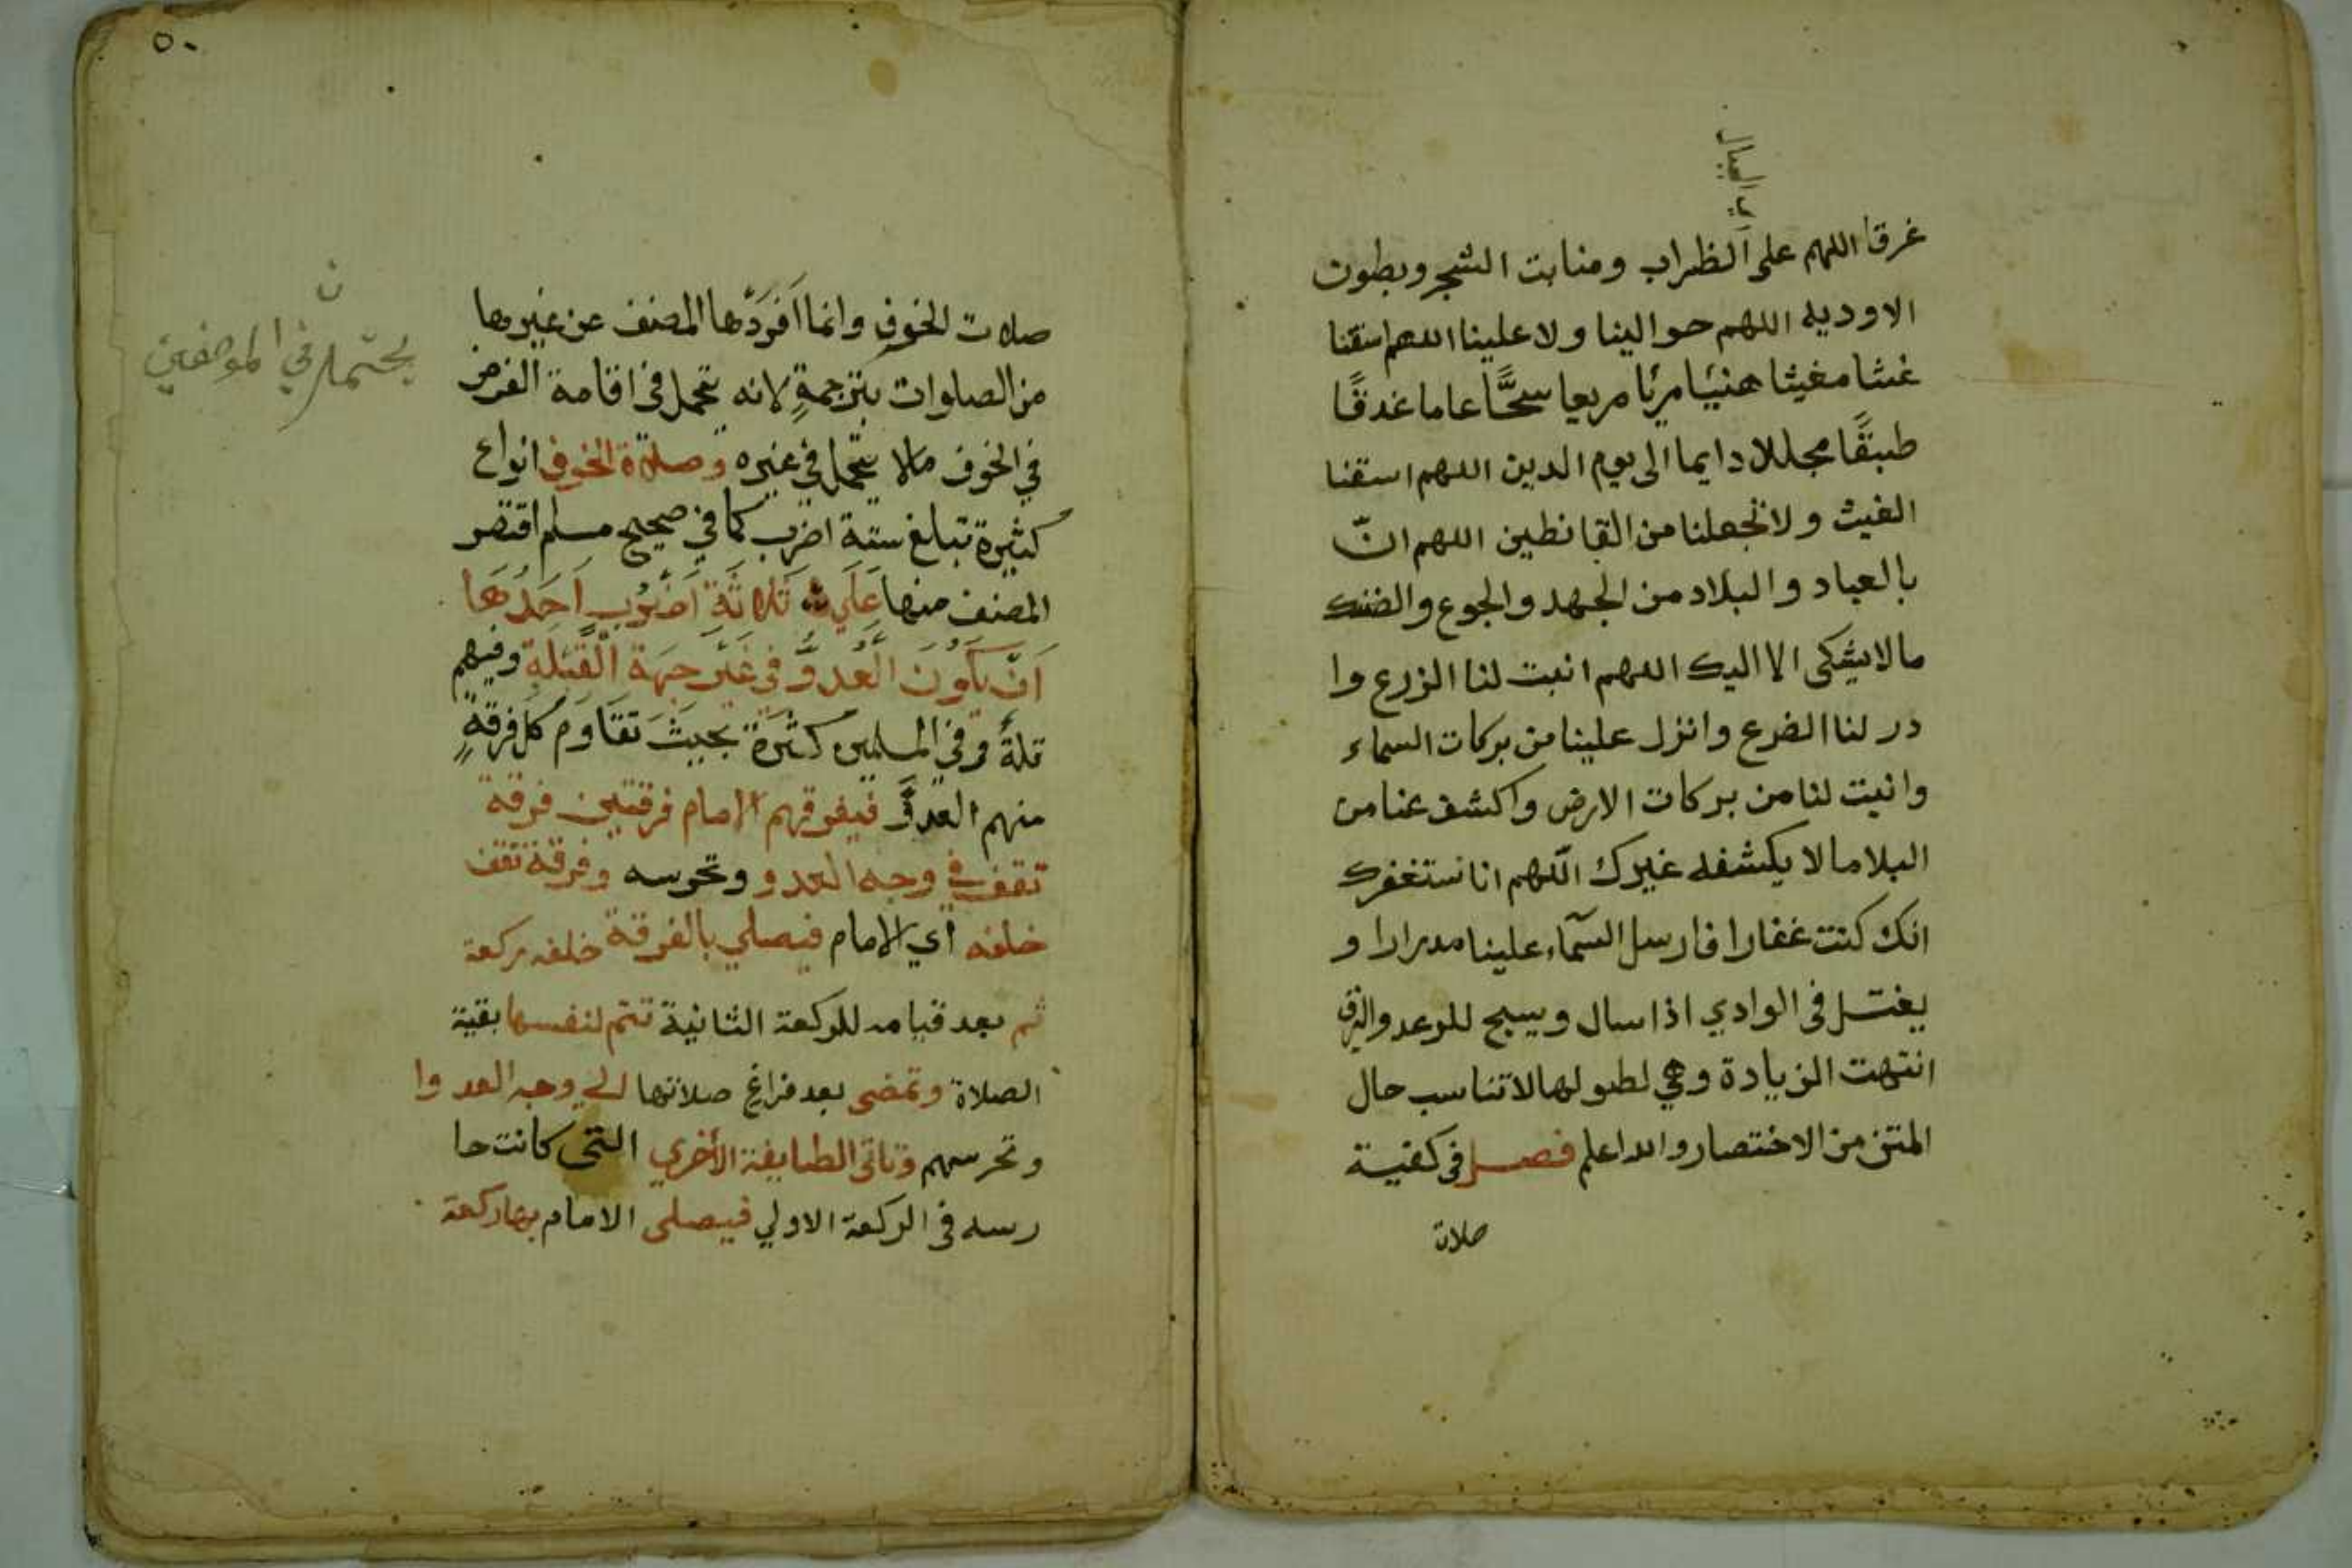 اي الجبال
غرقا اللهم على الظراب ومنابت الشجر وبطون
الاوديه اللهم حوالينا ولا علينا اللهم اسقنا
غيثا مغيثا هنيئا مريًا مريعا سحًّا عاما غدقًا
طبقًا مجللا دايما الى يوم الدين اللهم اسقنا
الغيث ولا تجعلنا من القانطين اللهم انّ
بالعباد والبلاد من الجهد والجوع والضنك
ما لا يشكى الا اليك اللهم انبت لنا الزرع وا
در لنا الضرع وانزل علينا من بركات السماء
وانبت لنا من بركات الارض واكشف عنا من
البلا ما لا يكشفه غيرك اللهم انا نستغفرك
انك كنت غفارا فارسل السماء علينا مدرارا و
يغتسل فى الوادي اذا سال ويسبح للرعد والبرق
انتهت الزيادة وهي لطولها لا تناسب حال
المتن من الاختصار والله اعلم فصل فى كفية
صلاة
٥٠
صلات الخوف وانما اَفرَدَها المصنف عن غيرها
من الصلوات بترجمةٍ لانه تحمل فى اقامة الفرض
في الخوف ما لا يتحمل في غيره وصلاة الخوف انواع
كثيرة تبلغ ستة اضرب كما في صحيح مسلم اقتصر
المصنف منها عَلَي ثَلاثَةِ اَضْرُبٍ اَحَدُهَا
اَنْ يَكُونَ الْعَدوُّ فِي غَيْرِ جِهَةِ الْقِبْلَةِ وفيهم
قلةٌ وفي المسلمين كثرَة بحيثَ تقَاوم كل فرقةٍ
منهم العدوَّ فيفرقهم الامام فرقتين فرقة
تقف في وجه العدو وتحرسه وفرقة تقف
خلفه اي الامام فيصلي بالفرقة خلفه ركعة
ثم بعد قيامه للركعة الثانية تتم لنفسها بقية
الصلاة وتمضى بعد فراغ صلاتها الي وجه العدو ا
وتحرسهم وتاتى الطايفة الأخري التى كانت حا
رسه فى الركعة الاولي فيصلى الامام بها ركعة
ن
يحتمل في الموضعين